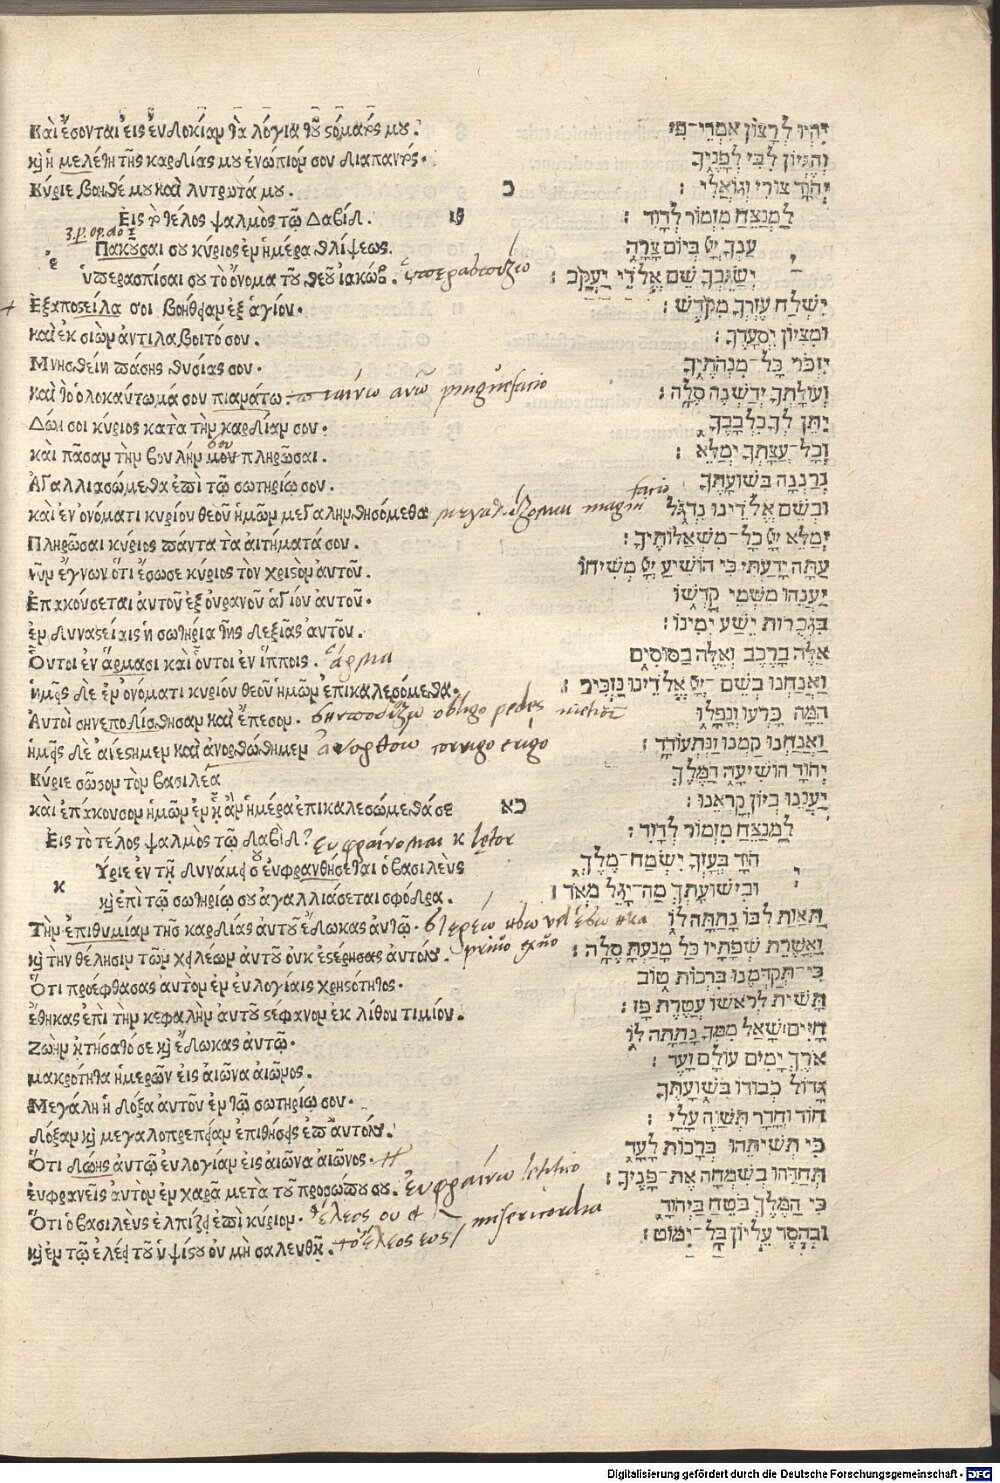 Καὶ ἔσονται εἰς ἐνδοκίαν τὰ λόγια τοῦ ςόματός μου.
κὴ ἡ μελέτη τῆς καρδίας μου ἐνώπιόν σου διαπαντός.
Κύριε βοηθέ μου καὶ λυτρωτά μου.
Εἰς τὸ τέλος ψαλμὸς τῷ Δαβίδ. ιθ
Πακοῦσαι σου κύριος ἐν ἡμέρα θλίψεως.
ὑπερασπίσαι σου τὸ ὄνομα τοῦ θεοῦ ἰακώβ.
Ἐξαποςείλα σοι βοήθειαν ἐξ ἁγίου.
καὶ ἐκ σιὼν ἀντιλαβοιτό σου.
Μνησθείη πάσης θυσίας σου.
καὶ τὸ ὁλοκαύτωμά σου πιανάτω. πιαίνω ανῶ pinguefacio
Δώη σοι κύριος κατὰ τὴν καρδίαν σου.
σου
καὶ πᾶσαν τὴν βουλήν μου πληρῶσαι.
Ἀγαλλιασώμεθα ἐπὶ τῷ σωτηρίῳ σου.
καὶ ἐν ὀνόματι κυρίου θεοῦ ἡμῶν μεγαλυνθησόμεθα
Πληρῶσαι κύριος πάντα τὰ αἰτήματά σου.
νῦν ἔγνων ὅτι ἔσωσε κύριος τὸν χριςὸν αὐτοῦ.
Ἐπακούσεται αὐτοῦ ἐξ οὐρανοῦ ἁγίου αὐτοῦ.
ἐν δυναςείαις ἡ σωτηρία τῆς δεξιᾶς αὐτοῦ.
Οὗτοι ἐν ἅρμασι καὶ οὗτοι ἐν ἵπποις. ἅρμα
ἡμεῖς δὲ ἐν ὀνόματι κυρίου θεοῦ ἡμῶν ἐπικαλεσόμεθα.
Αὐτοὶ συνεποδίσθησαν καὶ ἔπεσον. συνποδίζω obligo pedes
ἡμεῖς δὲ ἀνέςημεν καὶ ἀνορθώθημεν ἀνορθόω corrigo erigo
Κύριε σῶσον τὸν βασιλέα
καὶ ἐπάκουσον ἡμῶν ἐν ᾗ ἂν ἡμέρα ἐπικαλεσώμεθά σε
Εἰς τὸ τέλος ψαλμὸς τῷ Δαβίδ. ευφραίνομαι lętor
κ Ύριε ἐν τῇ δυνάμει σου εὐφρανθήσεται ὁ βασιλεὺς
κὴ ἐπὶ τῷ σωτηρίῳ σου ἀγαλλιάσεται σφόδρα.
Τὴν ἐπιθυμίαν τῆς καρδίας αὐτοῦ ἔδωκας αὐτῷ.
κὴ τὴν θέλησιν τῶν χειλέων αὐτοῦ οὐκ ἐςέρησας αὐτόν.
Ὅτι προέφθασας αὐτὸν ἐν εὐλογίαις χρηςότητος.
ἔθηκας ἐπὶ τὴν κεφαλὴν αὐτοῦ ςέφανον ἐκ λίθου τιμίου.
Ζωὴν ᾐτήσατό σε κὴ ἔδωκας αὐτῷ.
μακρότητα ἡμερῶν εἰς αἰῶνα αἰῶνος.
Μεγάλη ἡ δόξα αὐτοῦ ἐν τῷ σωτηρίῳ σου.
δόξαν κὴ μεγαλοπρέπειαν ἐπιθήσεις ἐπ' αὐτόν.
Ὅτι δώσεις αὐτῷ εὐλογίαν εἰς αἰῶνα αἰῶνος.
εὐφρανεῖς αὐτὸν ἐν χαρᾷ μετὰ τοῦ προσώπου σου. ευφραίνω letitio
Ὅτι ὁ βασιλεὺς ἐλπίζει ἐπὶ κύριον. ἔλεος ου et misericordia
κὴ ἐν τῷ ἐλέει τοῦ ὑψίςου οὐ μὴ σαλευθῇ. το ἔλεος εος
יִהְיוּ לְרָצוֹן אִמְרֵי־פִי
וְהֶגְיוֹן לִבִּי לְפָנֶיךָ
יְהֹוָה צוּרִי וְגוֹאֲלִי : כ
לַמְנַצֵּחַ מִזְמוֹר לְדָוִד :
יַעַנְךָ יְיָ בְּיוֹם צָרָה
יְשַׂגֶּבְךָ שֵׁם אֱלֹדֵי יַעֲקֹב :
יִשְׁלַח עֶזְרְךָ מִקֹּדֶשׁ :
וּמִצִּיּוֹן יִסְעָדֶךָ :
יִזְכֹּר כָּל־מִנְחֹתֶיךָ
וְעוֹלָתְךָ יְדַשְּׁנֶה סֶלָה :
יִתֶּן לְךָ כִלְבָבֶךָ
וְכָל־עֲצָתְךָ יְמַלֵּא :
נְרַנְּנָה בִּישׁוּעָתֶךָ
וּבְשֵׁם אֱלֹדֵינוּ נִדְגֹּל
יְמַלֵּא יְיָ כָּל־מִשְׁאֲלוֹתֶיךָ :
עַתָּה יָדַעְתִּי כִּי הוֹשִׁיעַ יְיָ מְשִׁיחוֹ
יַעֲנֵהוּ מִשְּׁמֵי קָדְשׁוֹ
בִּגְבֻרוֹת יֵשַׁע יְמִינוֹ :
אֵלֶּה בָרֶכֶב וְאֵלֶּה בַסּוּסִים
וַאֲנַחְנוּ בְּשֵׁם־יְיָ אֱלֹדֵינוּ נַזְכִּיר :
הֵמָּה כָּרְעוּ וְנָפָלוּ
וַאֲנַחְנוּ קַמְנוּ וַנִּתְעוֹדָד :
יְהֹוָה הוֹשִׁיעָה הַמֶּלֶךְ
יַעֲנֵנוּ בְיוֹם קָרְאֵנוּ : כא
לַמְנַצֵּחַ מִזְמוֹר לְדָוִד :
יְהֹוָה בְּעָזְּךָ יִשְׂמַח־מֶלֶךְ
וּבִישׁוּעָתְךָ מַה־יָּגֶל מְאֹד :
תַּאֲוַת לִבּוֹ נָתַתָּה לּוֹ
וַאֲרֶשֶׁת שְׂפָתָיו בַּל מָנַעְתָּ סֶלָה :
כִּי־תְקַדְּמֶנּוּ בִּרְכוֹת טוֹב
תָּשִׁית לְרֹאשׁוֹ עֲטֶרֶת פָּז :
חַיִּים שָׁאַל מִמְּךָ נָתַתָּה לּוֹ
אֹרֶךְ יָמִים עוֹלָם וָעֶד :
גָּדוֹל כְּבוֹדוֹ בִּישׁוּעָתֶךָ
הוֹד וְהָדָר תְּשַׁוֶּה עָלָיו :
כִּי תְשִׁיתֵהוּ בְרָכוֹת לָעַד
תְּחַדֵּהוּ בְשִׂמְחָה אֶת־פָּנֶיךָ :
כִּי הַמֶּלֶךְ בֹּטֵחַ בַּיהֹוָה
וּבְחֶסֶד עֶלְיוֹן בַּל־יִמּוֹט :
Digitalisierung gefördert durch die Deutsche Forschungsgemeinschaft - DFG